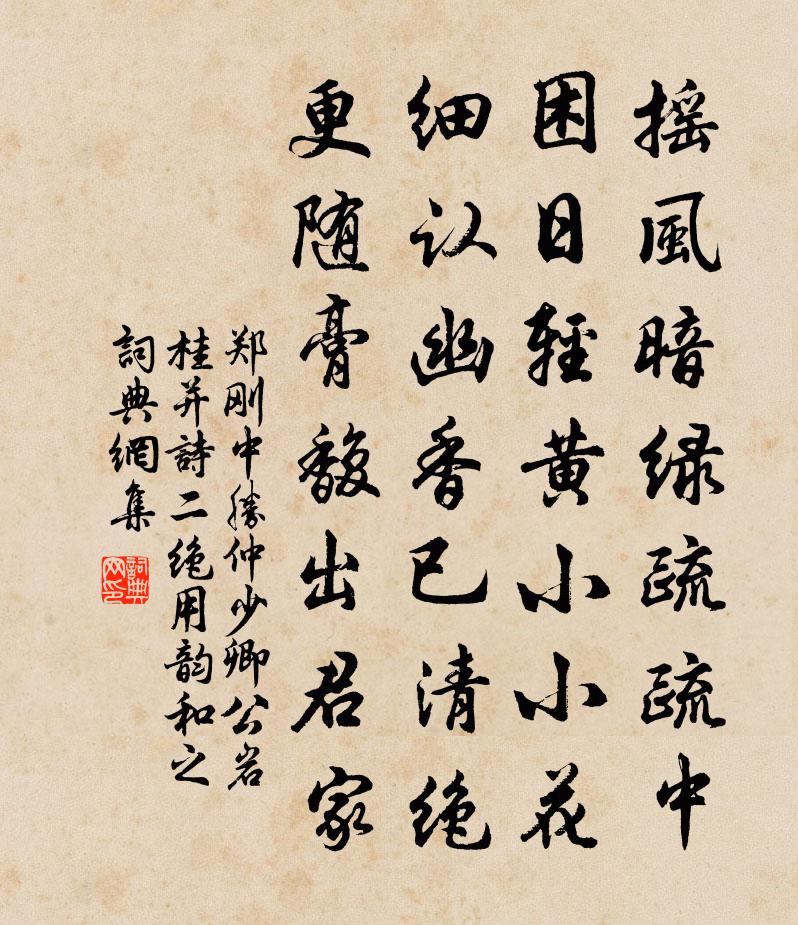 摇風暗绿疏疏中
困日輕黄小小花
细认幽香已清绝
更随膏馥出君家
郑刚中勝仲少卿公岩
桂并詩二绝用韵和之
詞典網集
詞典网印